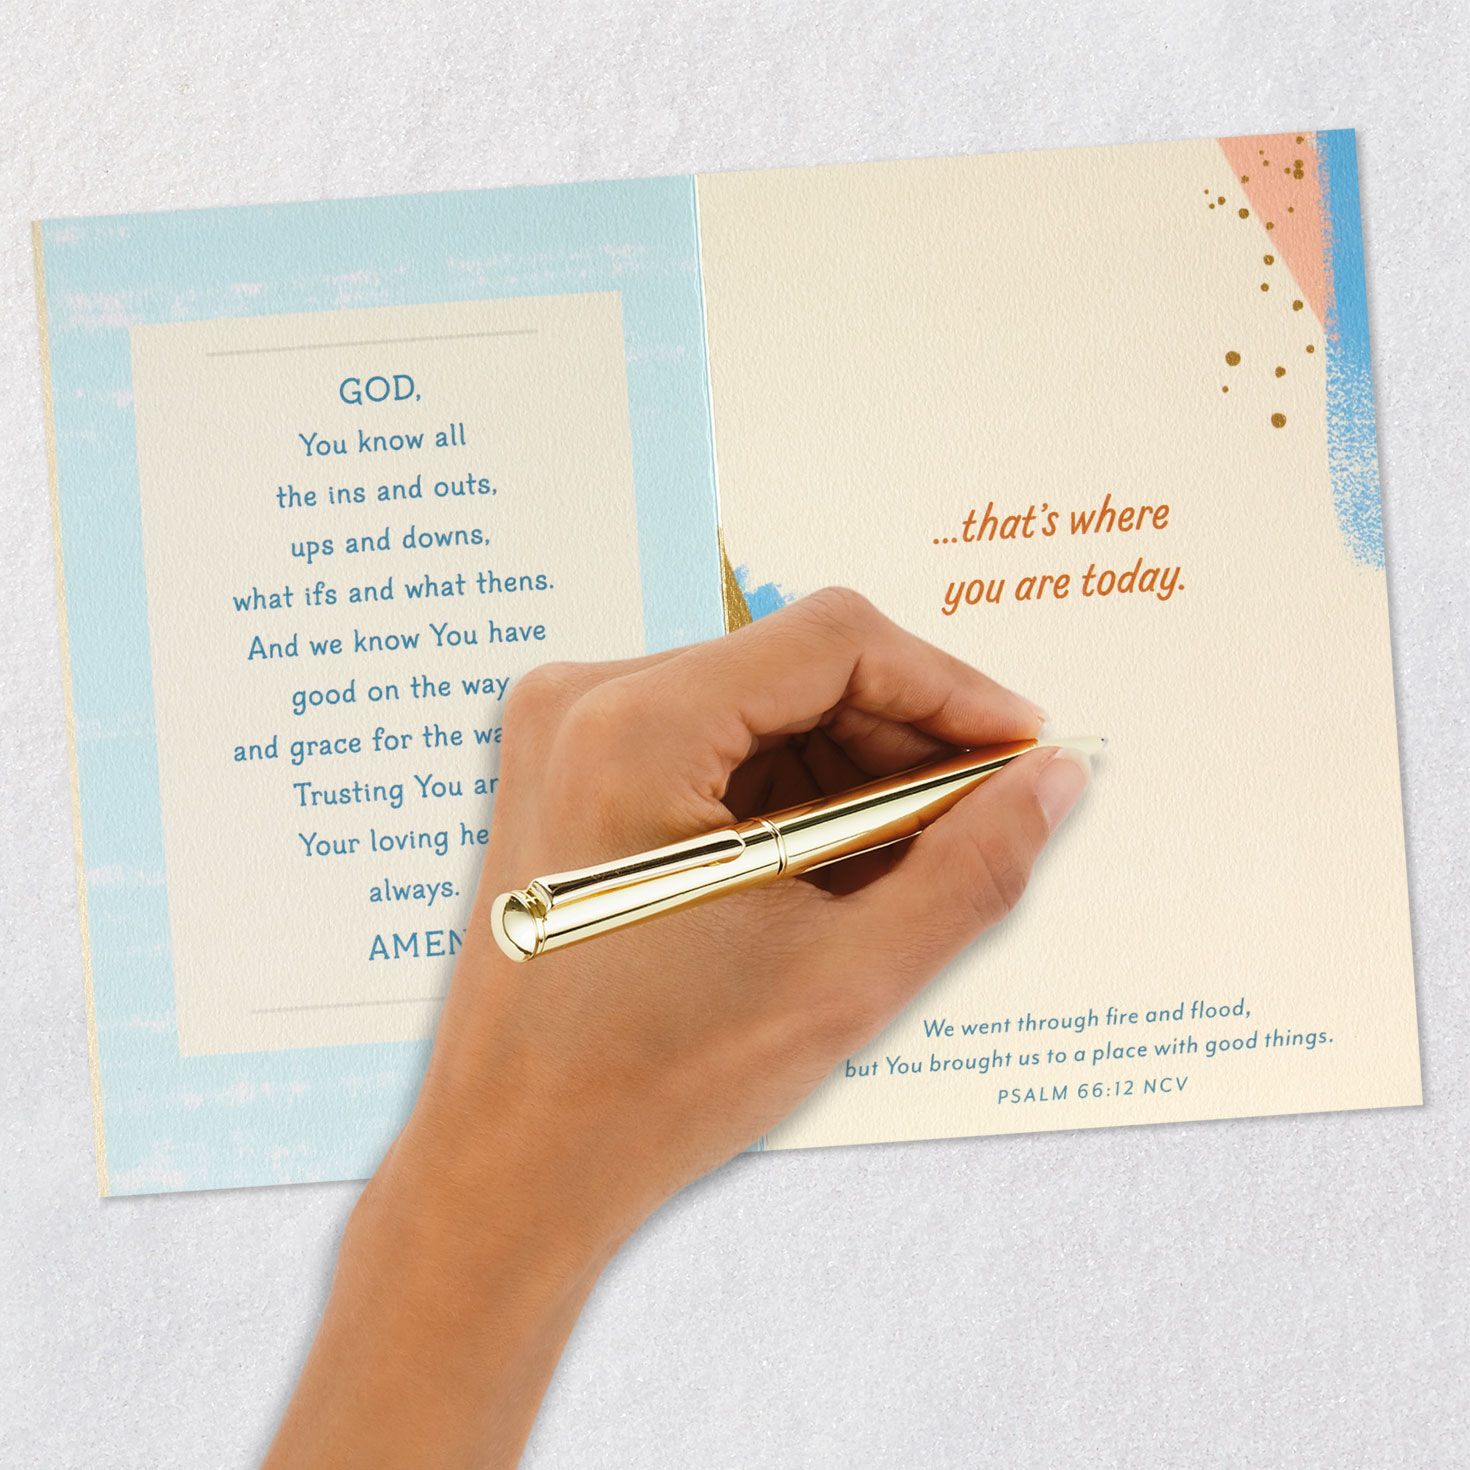 GOD,
You know all
the ins and outs,
ups and downs,
what ifs and what thens.
And we know You have
good on the way
and grace for the
Trusting You
Your loving
always.
AMEN
...that's where
you are today.
We went through fire and flood,
but You brought us to a place with good things.
PSALM 66:12 NCV